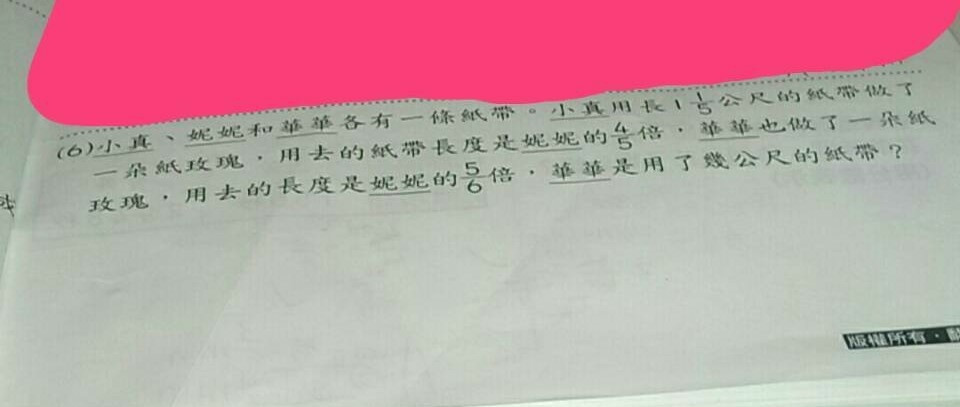 (6)小真、妮妮和華華各有一條紙帶。小真用長1 1/5公尺的紙帶做了
一朵紙玫瑰,用去的紙帶長度是妮妮的4/5倍,華華也做了一朵紙
玫瑰,用去的長度是妮妮的5/6倍,華華是用了幾公尺的紙帶?
版權所有・